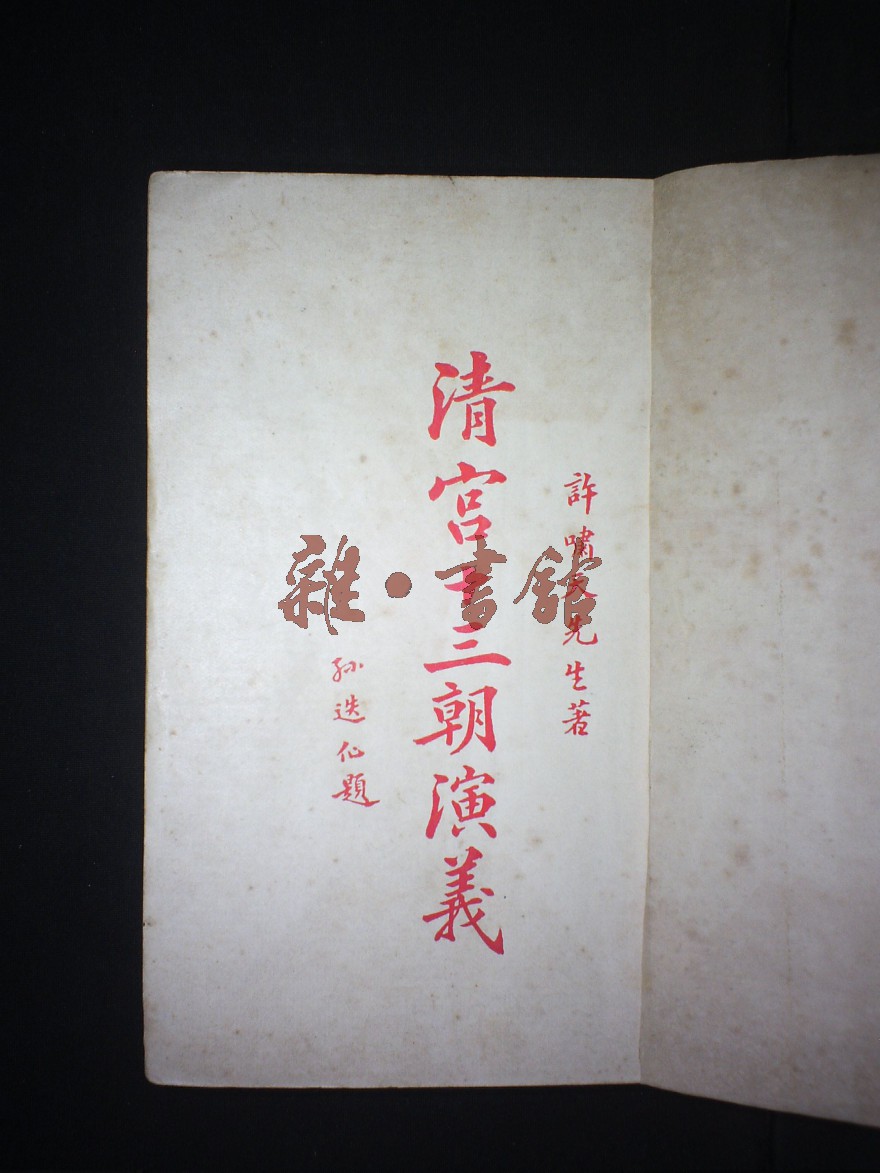 許嘯天先生著
清宮十三朝演義
孫迭仙題
雜·書館